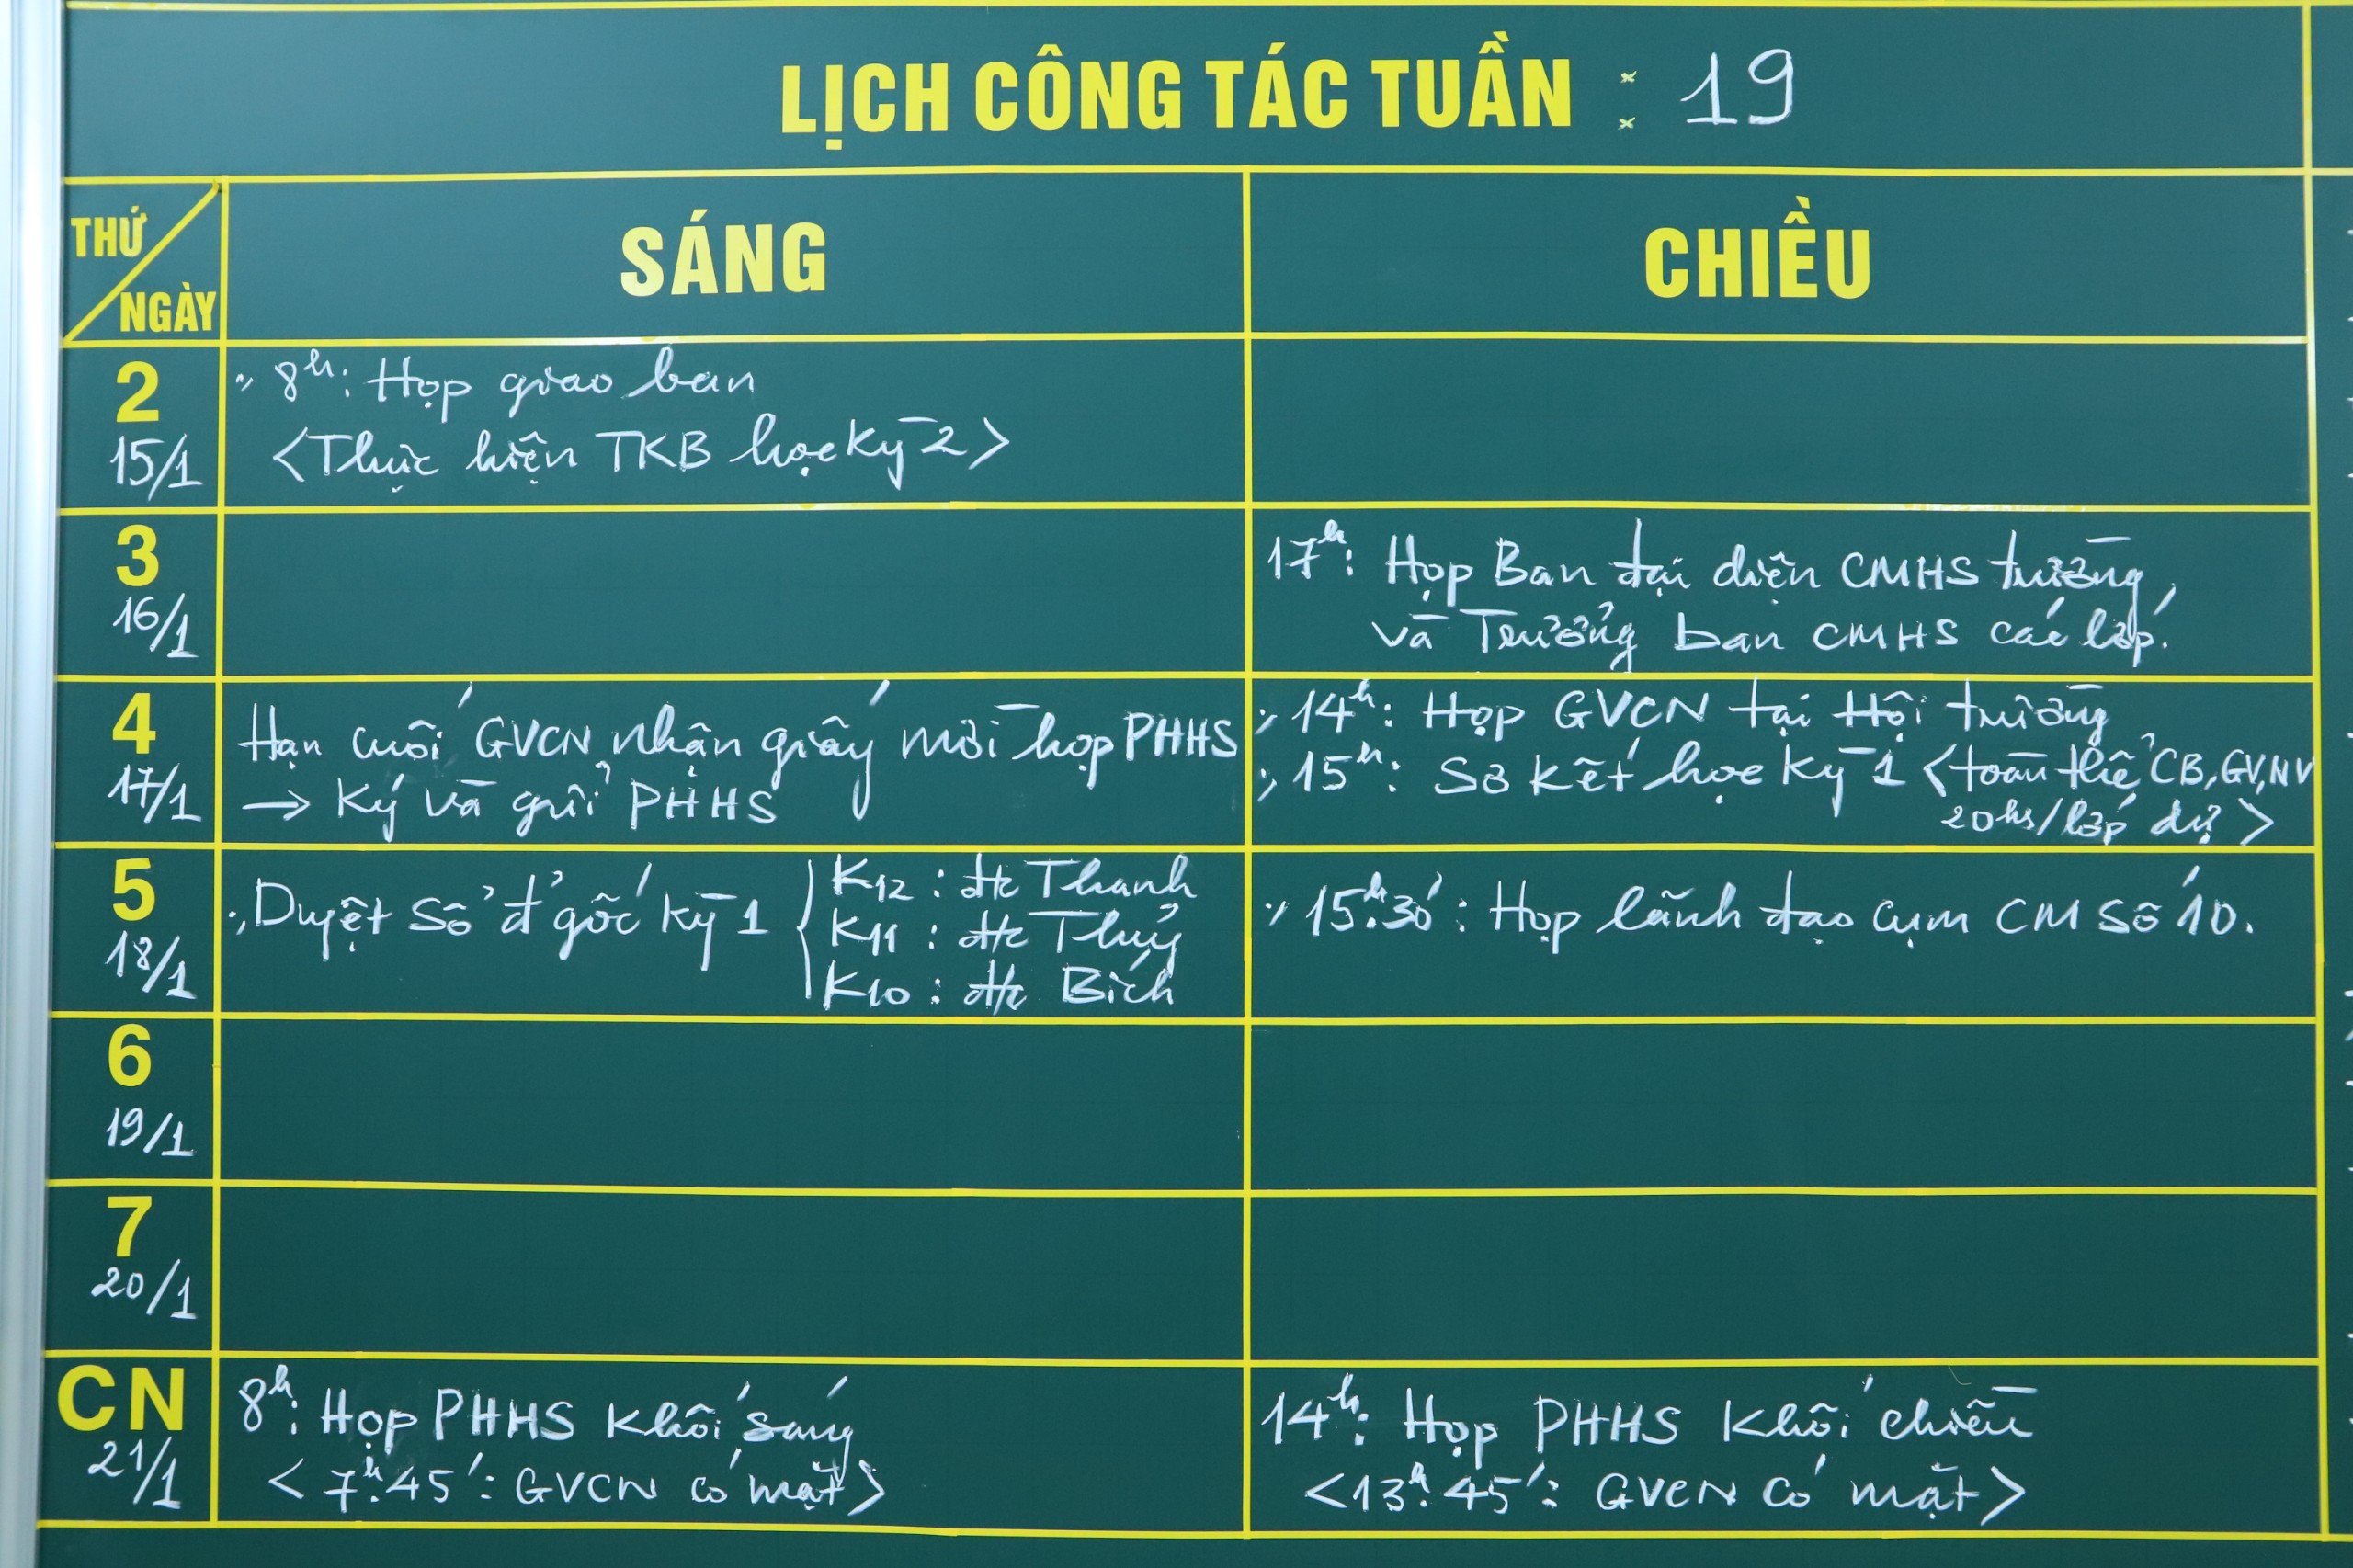 LỊCH CÔNG TÁC TUẦN : 19
THỨ
NGÀY
SÁNG
CHIỀU
2
15/1
8h: Họp giao ban
<Thực hiện TKB học kỳ 2>
3
16/1
17h: Họp Ban đại diện CMHS trường,
và Trưởng ban CMHS các lớp.
4
17/1
Hạn cuối GVCN nhận giấy mời họp PHHS
→ Ký và gửi PHHS
14h: Họp GVCN tại Hội trường
15h: Sơ kết học kỳ 1 <toàn thể CB, GV, NV
20hs/lớp dự>
5
18/1
Duyệt sổ đ' gốc kỳ 1
K12 : đ/c Thanh
K11 : đ/c Thúy
K10 : đ/c Bích
15h:30': Họp lãnh đạo cụm CM số 10.
6
19/1
7
20/1
CN
21/1
8h: Họp PHHS khối sáng
<7h:45': GVCN có mặt>
14h: Họp PHHS khối chiều
<13h:45': GVCN có mặt>